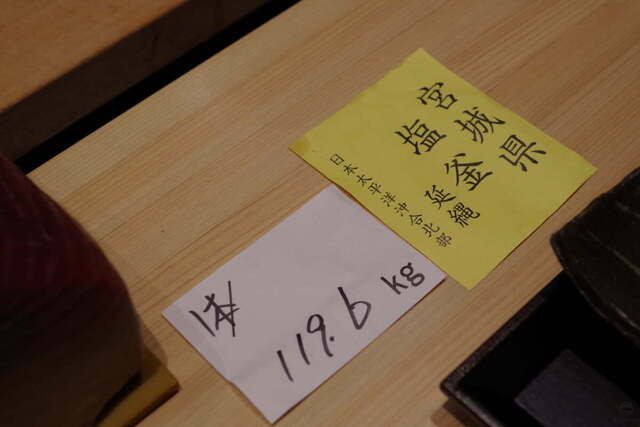 宮城県
塩釜 延縄
日本太平洋沖合北部
本
119.6 kg